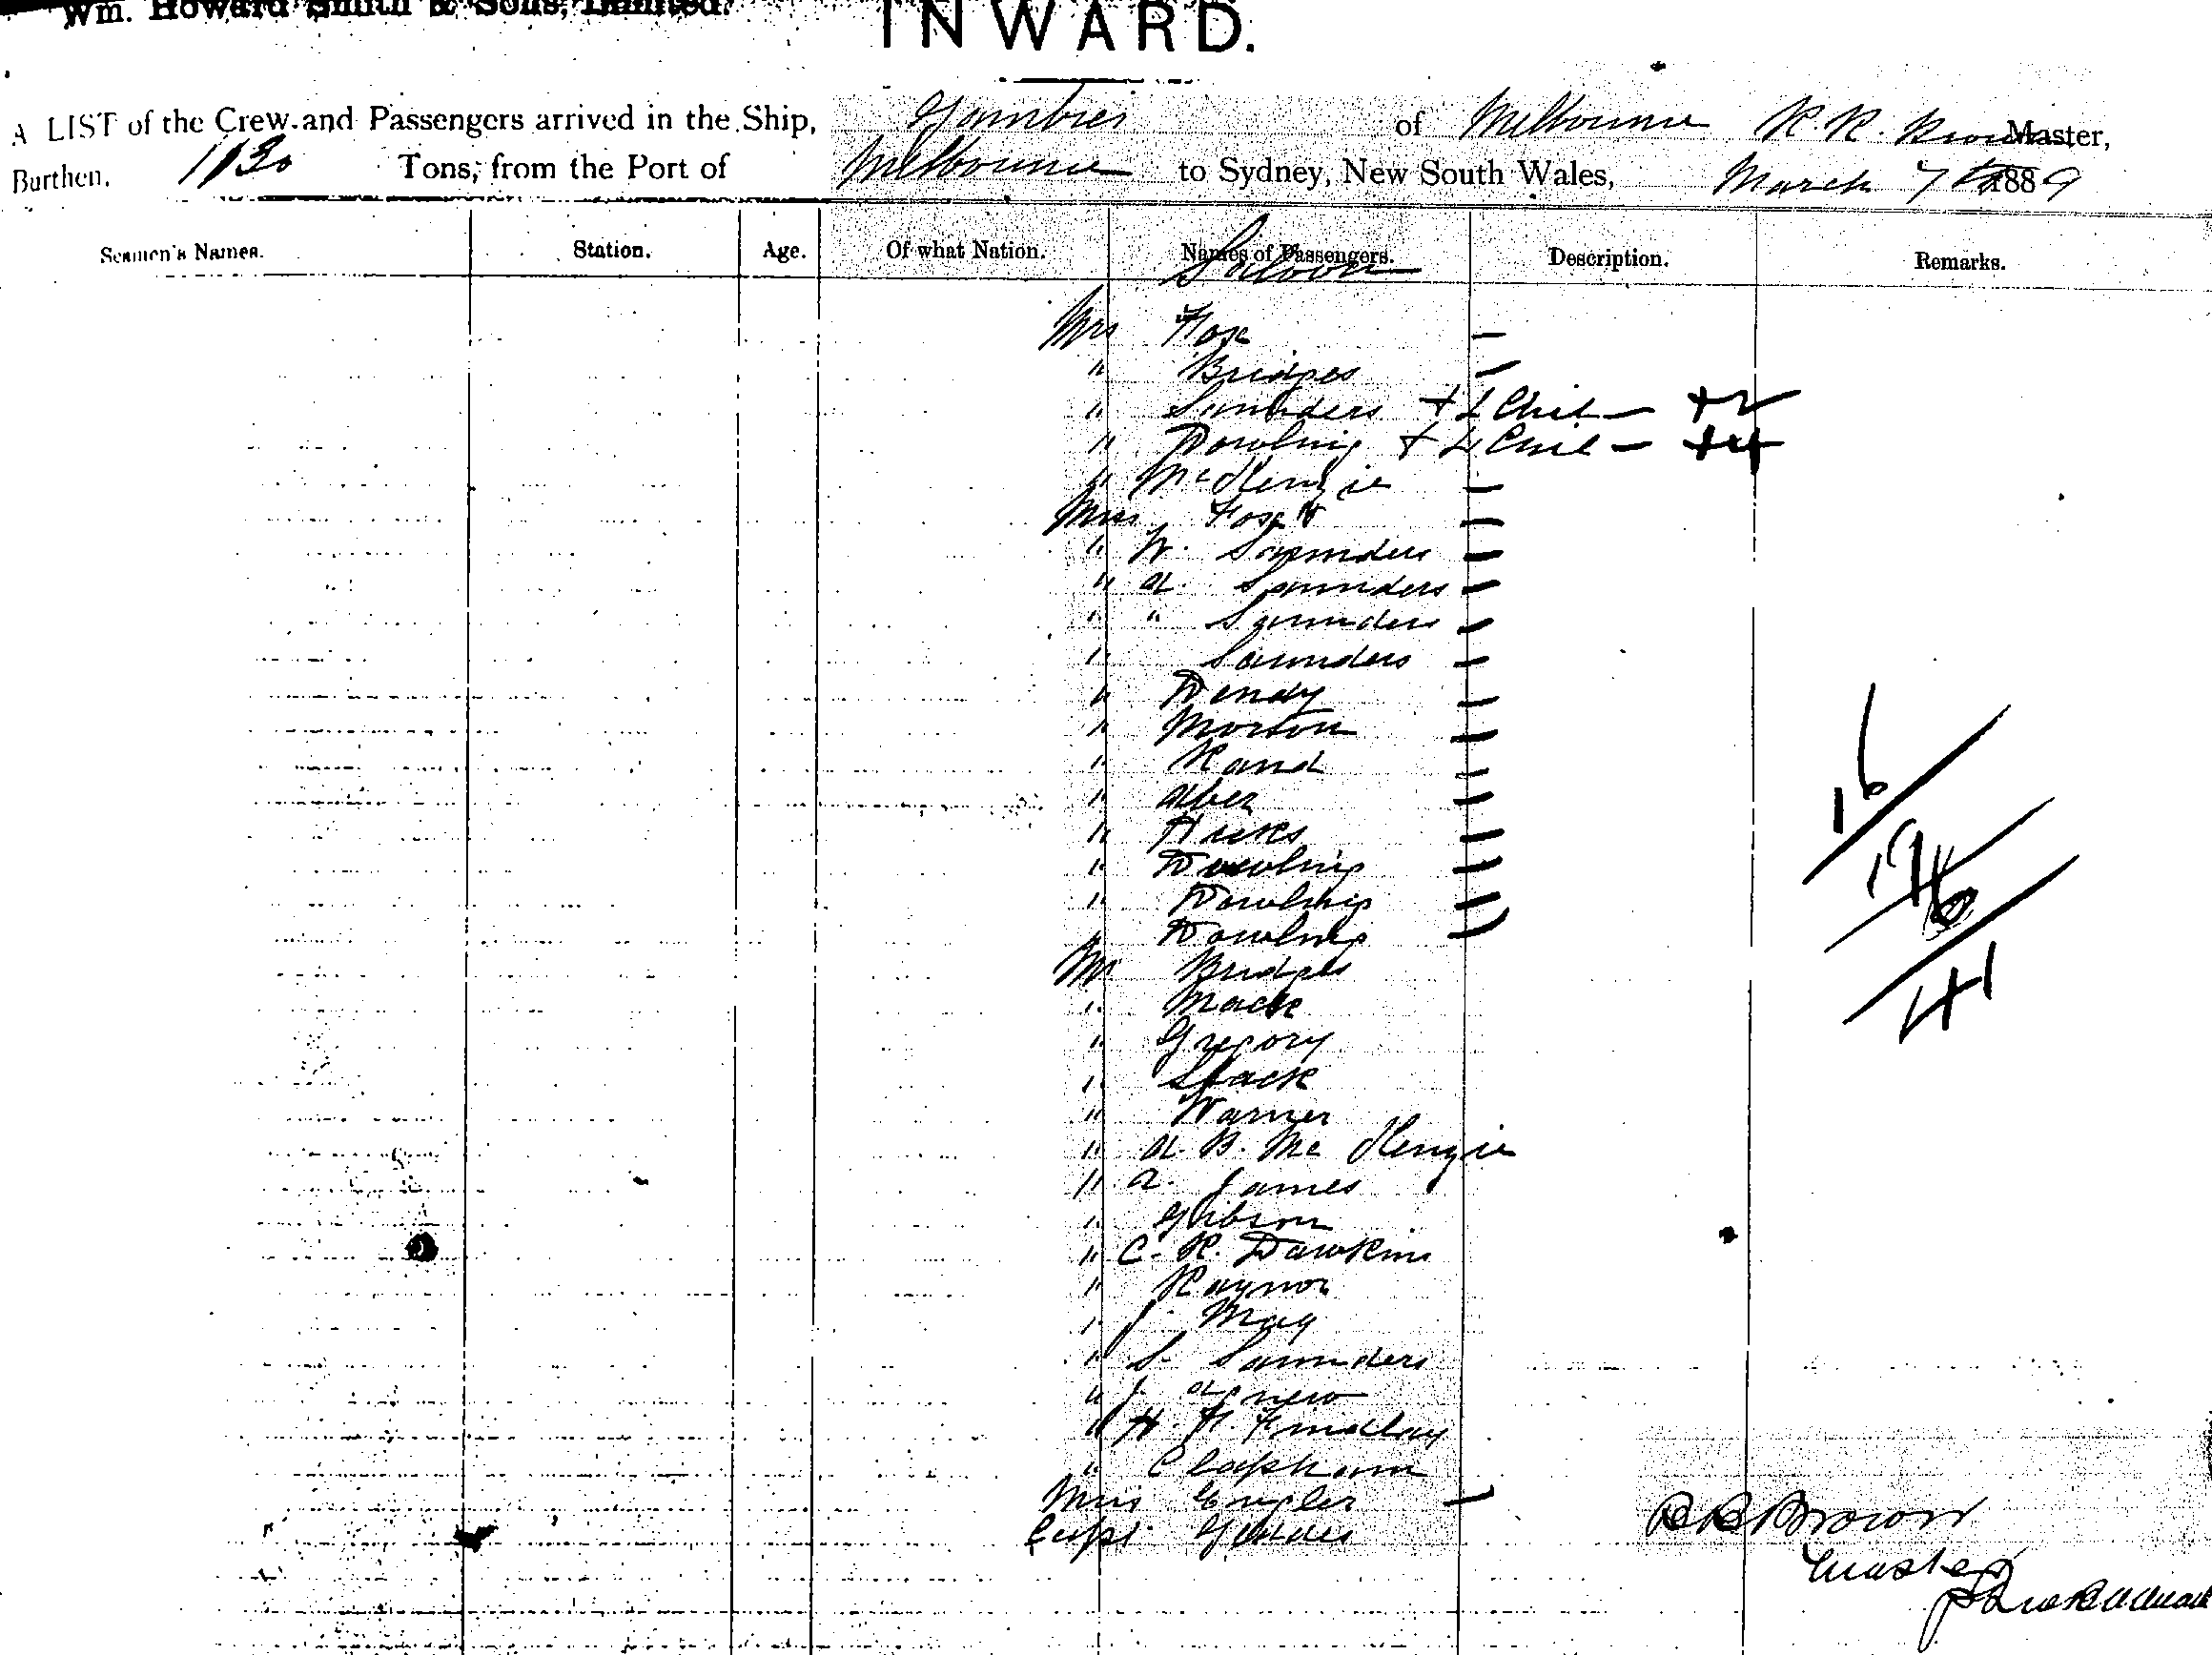 Wm. Howard Smith & Sons, Limited.
INWARD.
A LIST of the Crew and Passengers arrived in the Ship, Gambier of Melbourne R. R. Brown Master,
Burthen, 1130 Tons, from the Port of Melbourne to Sydney, New South Wales, March 7th 1889
Seamen's Names. Station. Age. Of what Nation. Names of Passengers. Description. Remarks.
Saloon
Mrs Fox —
" Bridges —
" Saunders + 2 Chil — +2
" Dowling + 4 Chil — +4
" McKenzie —
Miss Fox —
" W. Saunders —
" A. Saunders —
" " Saunders —
" Saunders —
" Dendy —
" Morton —
" Rand —
" —
" Hicks —
" Dowling —
" Dowling —
Dowling —
Mr Bridges
" Mack
" Gregory
" Slack
" Warner
" A. B. McKenzie
" A. James
" Gibson
" C. R. Dawkins
" Raynor
" J. May
" S. Saunders
" J. Agnew
" H. F. Findlay
" Clapham
Miss Engler —
Capt
16
19
6
41
R R Brown
Master